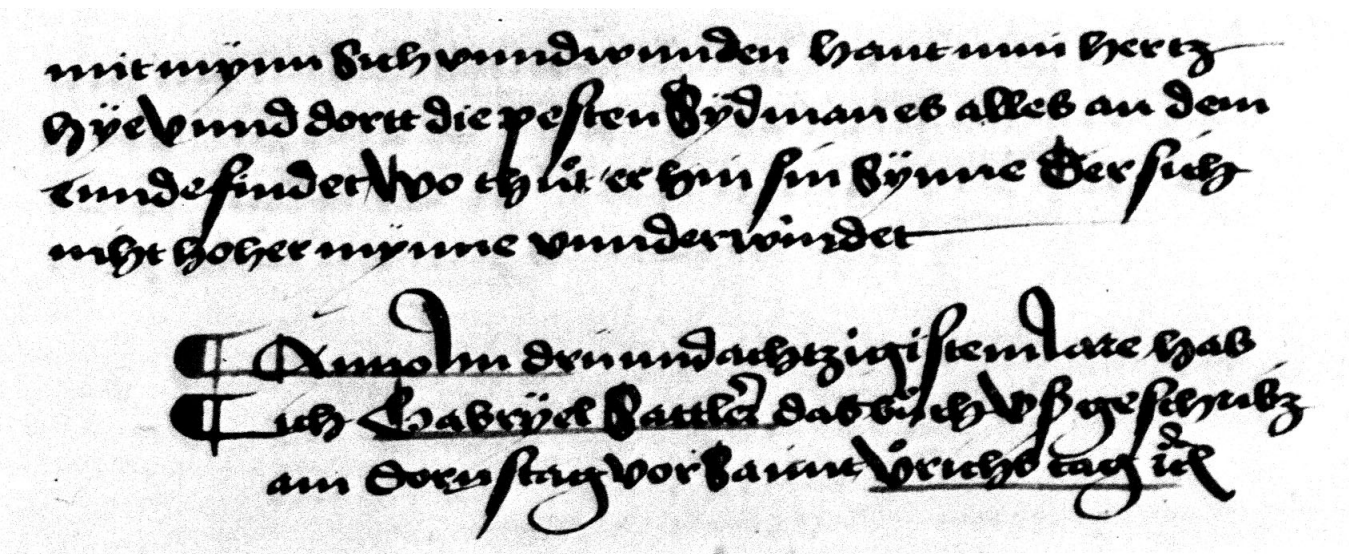 mit mÿnn Sich vnnd wunden haut min hertz
hÿe Vnnd dortt die pesten Sÿd man es alles an dem
ennde findet Wo thůt er hin sin Sÿnne Der sich
niht hoher mÿnne vnnderwindet
¶ Anno Im dru und achtzigistem Jare hab
¶ ich Gabrÿel Sattler das bůch vß geschribz
am Dornstag vor Sannt Vͦrichs tag